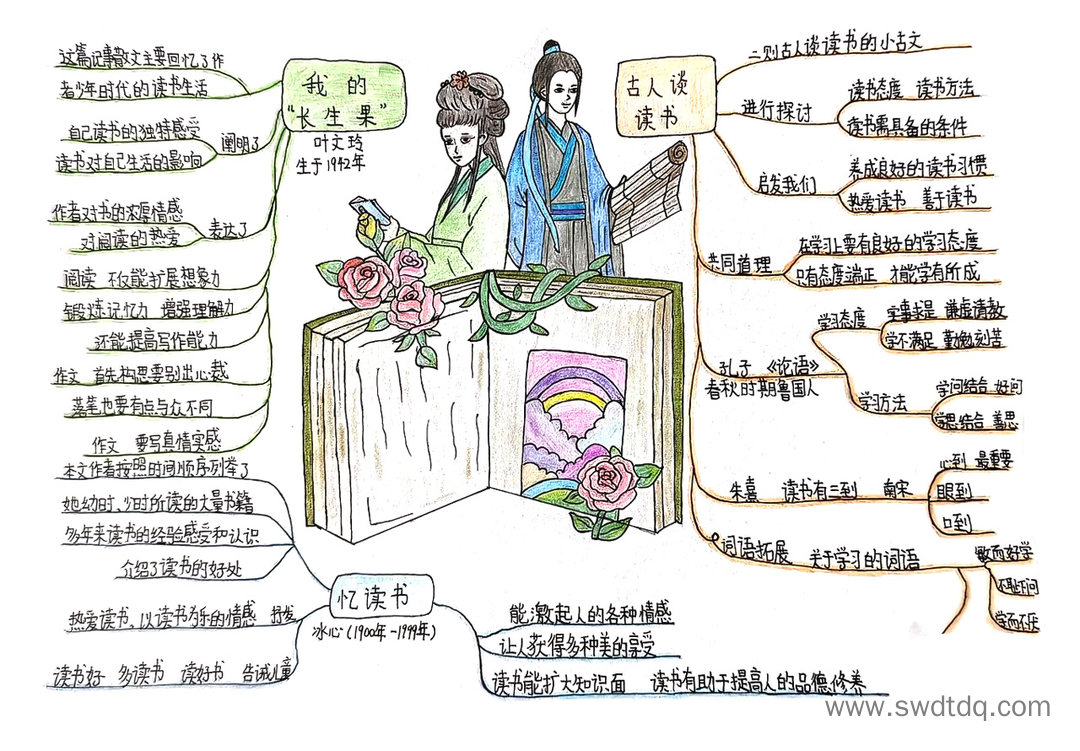 我的
“长生果”
叶文玲
生于1942年
这篇记事散文主要回忆了作
者少年时代的读书生活
阐明了
自己读书的独特感受
读书对自己生活的影响
表达了
作者对书的浓厚情感
对阅读的热爱
阅读 不仅能扩展想象力
锻炼记忆力 增强理解力
还能提高写作能力
作文 首先构思要别出心裁
落笔也要有点与众不同
作文 要写真情实感
古人谈
读书
二则古人谈读书的小古文
进行探讨
读书态度 读书方法
读书需具备的条件
启发我们
养成良好的读书习惯
热爱读书 善于读书
共同道理
在学习上要有良好的学习态度
只有态度端正 才能学有所成
孔子 《论语》
春秋时期鲁国人
学习态度
实事求是 谦虚请教
学不满足 勤勉刻苦
学习方法
学问结合 好问
学思结合 善思
朱熹 读书有三到 南宋
心到 最重要
眼到
口到
词语拓展 关于学习的词语
敏而好学
不耻下问
学而不厌
忆读书
冰心(1900年-1999年)
本文作者按照时间顺序列举了
她幼时、少时所读的大量书籍
多年来读书的经验感受和认识
介绍了读书的好处
热爱读书、以读书为乐的情感 抒发
读书好 多读书 读好书 告诫儿童
能激起人的各种情感
让人获得多种美的享受
读书能扩大知识面 读书有助于提高人的品德修养
www.swdtdq.com